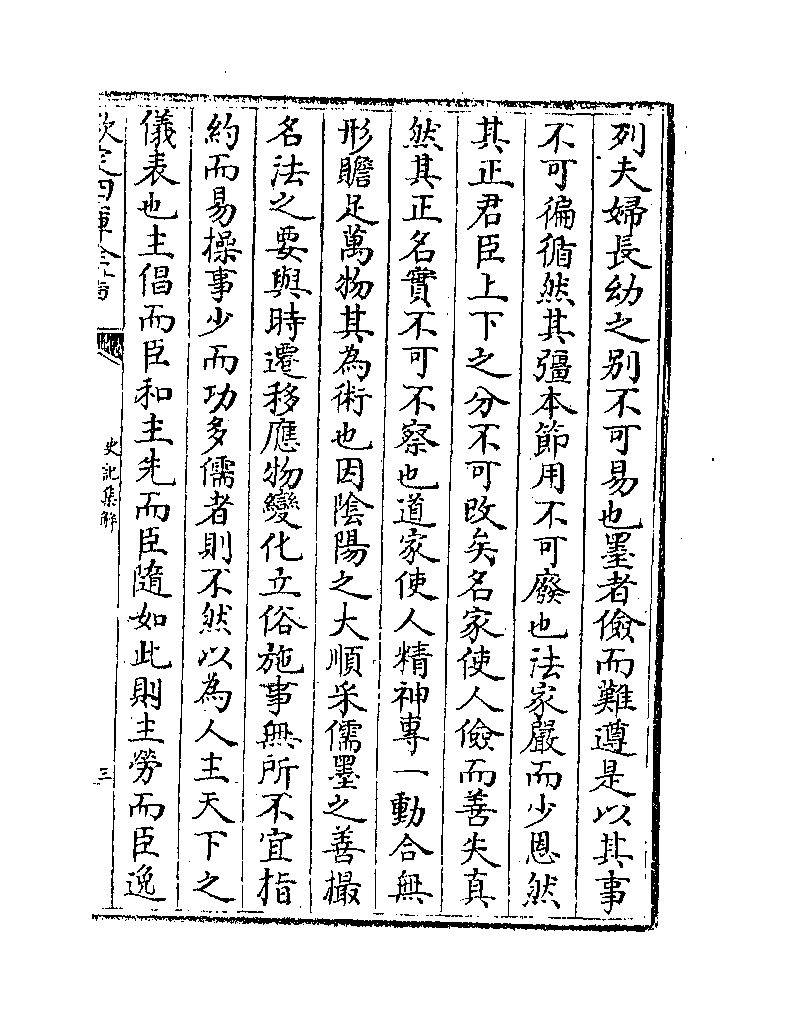 列夫婦長幼之别不可易也墨者儉而難遵是以其事
不可徧循然其彊本節用不可廢也法家嚴而少恩然
其正君臣上下之分不可改矣名家使人儉而善失真
然其正名實不可不察也道家使人精神專一動合無
形贍足萬物其為術也因陰陽之大順采儒墨之善撮
名法之要與時遷移應物變化立俗施事無所不宜指
約而易操事少而功多儒者則不然以為人主天下之
儀表也主倡而臣和主先而臣隨如此則主勞而臣逸
欽定四庫全書
史記集解
三